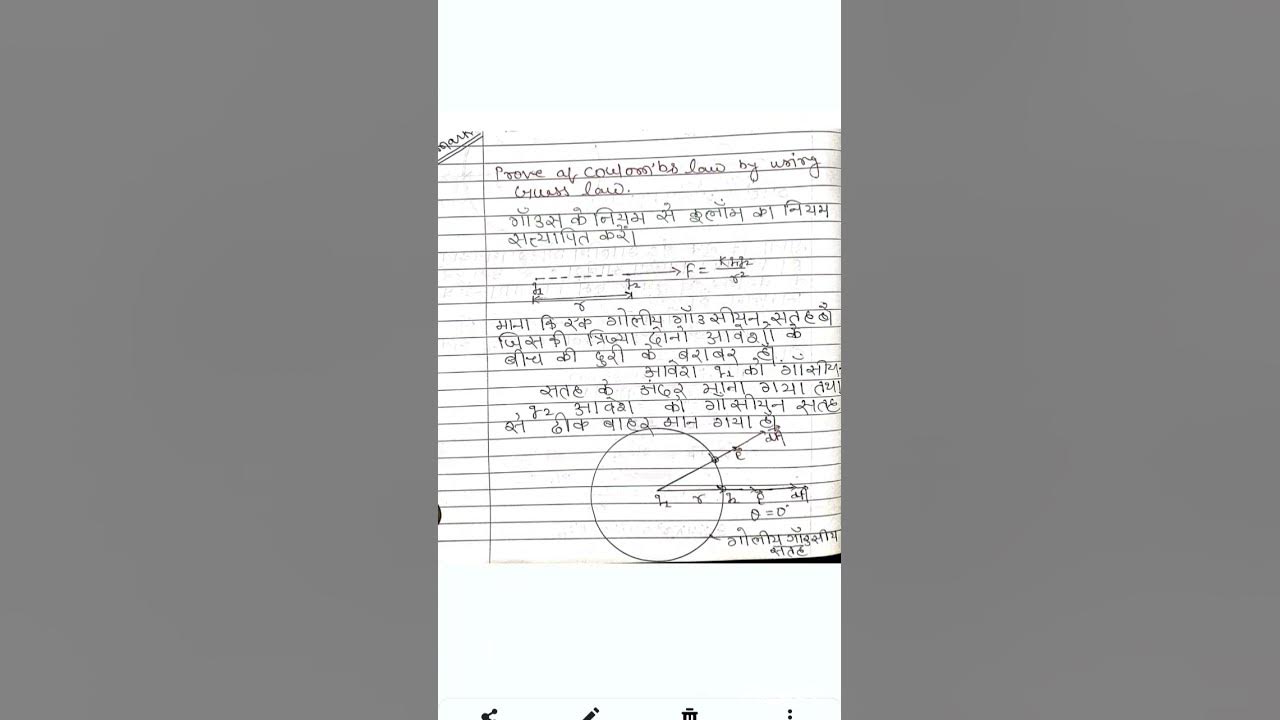 mark
Prove of coulom'bs law by using
Guass law.
गॉउस के नियम से कुलॉम का नियम
सत्यापित करें।
F = Kq₁q₂/r²
q₁ q₂
r
माना कि एक गोलीय गॉउसीयन सतह है
जिसकी त्रिज्या दोनो आवेशों के
बीच की दुरी के बराबर है।
आवेश q₁ को गॉसीय
सतह के अंदर माना गया तथा
q₂ आवेश को गॉसीयन सतह
से ठीक बाहर मान गया है
E
q₁ r q₂ E
θ = 0°
गोलीय गॉउसीय
सतह